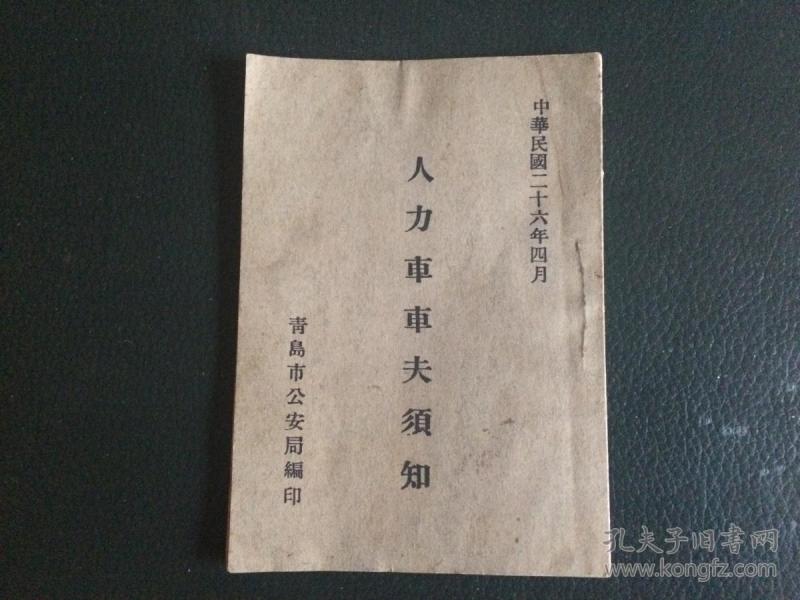 中華民國二十六年四月
人力車車夫須知
青島市公安局編印
孔夫子旧书网
www.kongfz.com